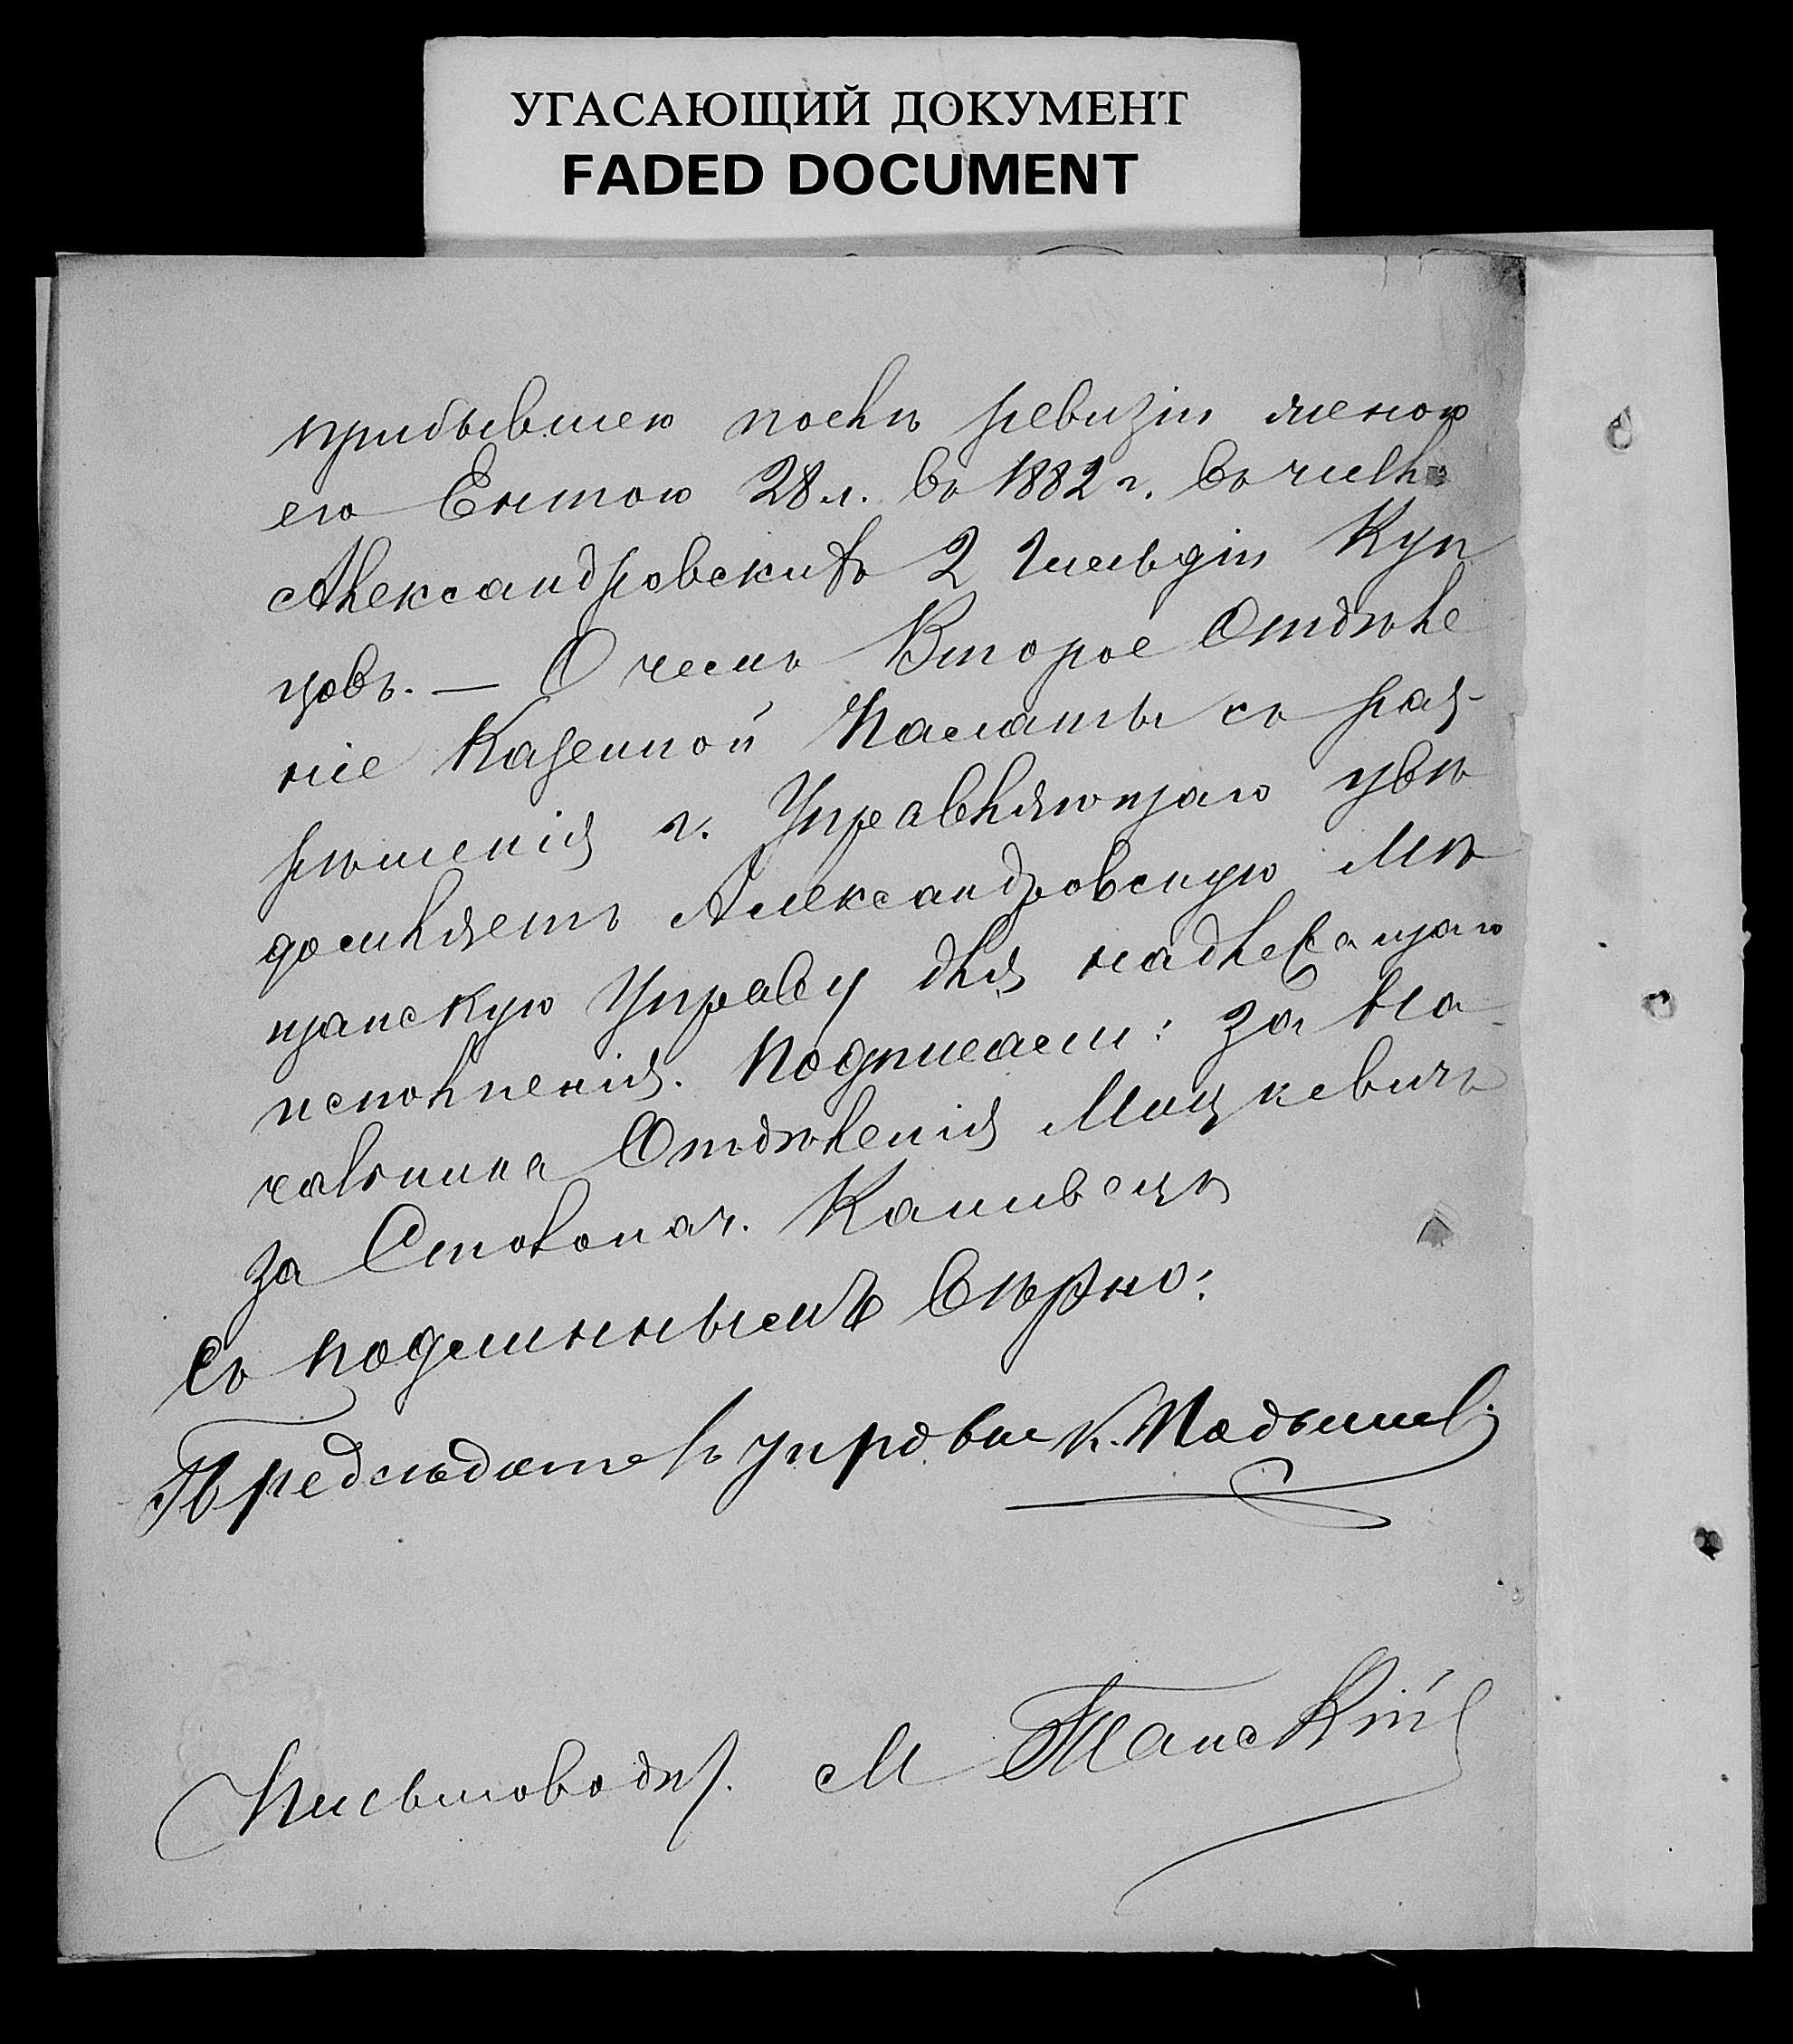 УГАСАЮЩИЙ ДОКУМЕНТ
FADED DOCUMENT
прибывшею послѣ ревизіи женою
его Ентою 28 л. въ 1882 г. въ числѣ
Александровскихъ 2 Гильдіи Куп
цовъ. — О чемъ Второе Отдѣле
ніе Казенной Палаты съ раз-
рѣшенія г. Управляющаго увѣ
домляетъ Александровскую Мѣ
щанскую Управу для надлежащаго
исполненія. Подписали: За На
чальника Отдѣленія Мацкевичъ
за Столонач. Канивецъ
Съ подлиннымъ Вѣрно:
Предсѣдатель управы К.
Письмоводит. М Танскій